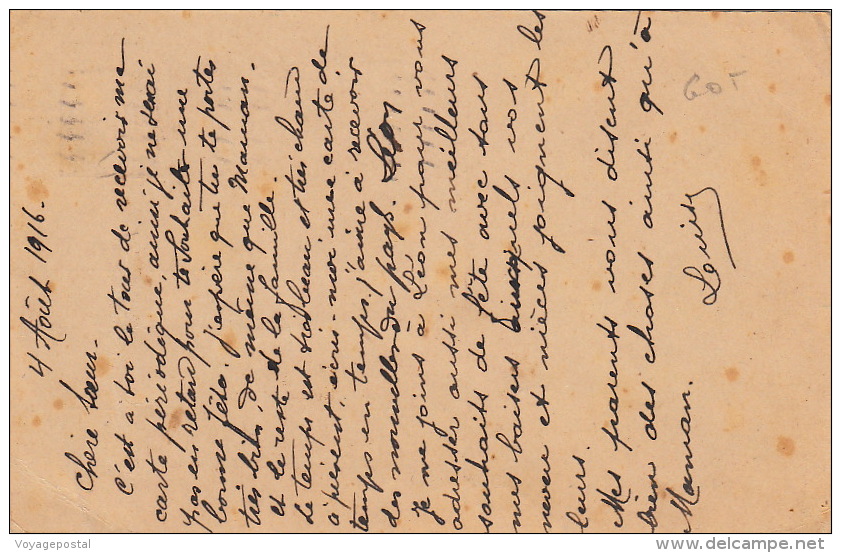 4 Août 1916.
Chère Sœur.
C'est à toi le tour de recevoir ma
carte périodique, aussi je ne serai
pas en retard pour te souhaiter une
bonne fête. J'espère que tu te portes
très bien, de même que Maman.
et le reste de la famille.
Le temps est très beau et très chaud
à présent, écris-moi une carte de
temps en temps, j'aime à recevoir
des nouvelles du pays. Léon
Je me joins à Léon pour vous
adresser aussi mes meilleurs
souhaits de fête avec tous
mes baisers auxquels vos
neveu et nièces joignent les
leurs.
Mes parents vous disent
bien des choses ainsi qu'à
Maman.
Louise
60 F
Voyagepostal
www.delcampe.net